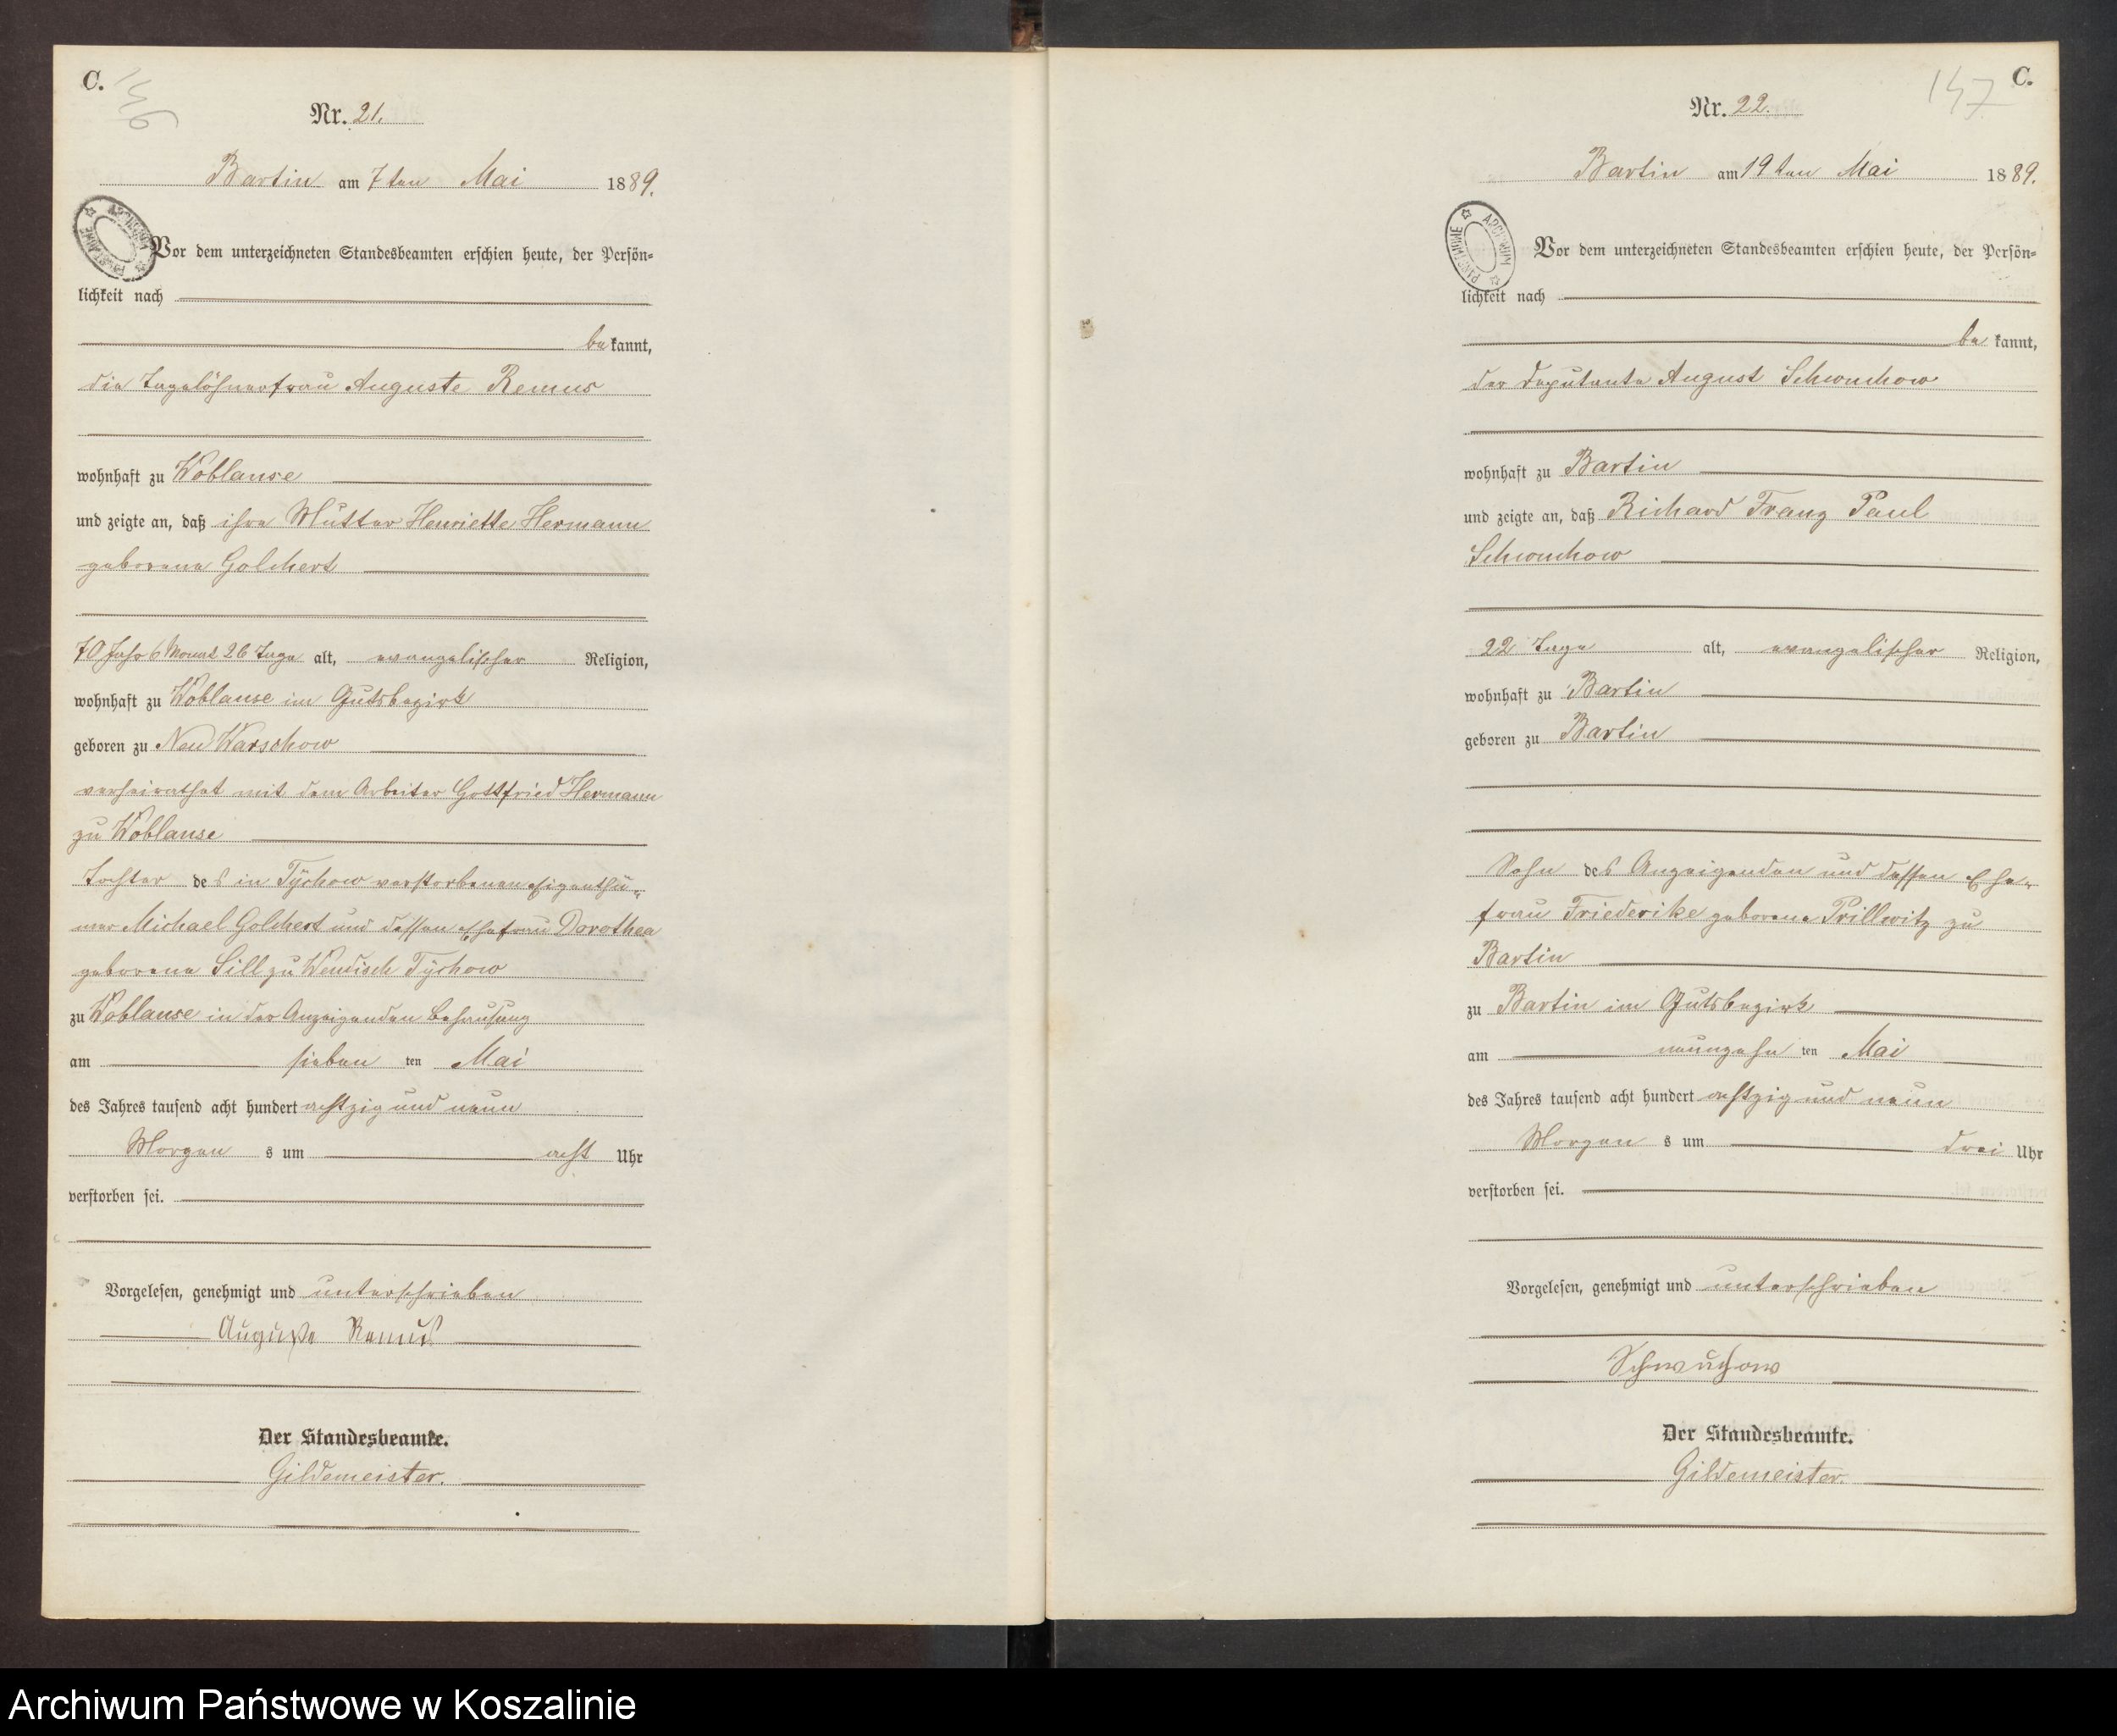 C.
146
Nr. 21.
Bartin am 7ten Mai 1889.
ARCHIWUM PAŃSTWOWE
Vor dem unterzeichneten Standesbeamten erschien heute, der Persön-
lichkeit nach
be kannt,
die Tagelöhnerfrau Auguste Remus
wohnhaft zu Woblanse
und zeigte an, daß ihre Mutter Henriette Hermann
geborene Golchert
70 Jahr 6 Monat 26 Tage alt, evangelischer Religion,
wohnhaft zu Woblanse im Gutsbezirk
geboren zu Neu Warschow
verheirathet mit dem Arbeiter Gottfried Hermann
zu Woblanse
Tochter des in Tÿchow verstorbenen Eigenthü-
mer Michael Golchert und dessen Ehefrau Dorothea
geborene Sill zu Wendisch Tÿchow
zu Woblanse in der Anzeigenden Behausung
am sieben ten Mai
des Jahres tausend acht hundert achtzig und neun
Morgen s um acht Uhr
verstorben sei.
Vorgelesen, genehmigt und unterschrieben
Auguste Remus
Der Standesbeamte.
Gildemeister.
C.
147
Nr. 22.
Bartin am 19ten Mai 1889.
ARCHIWUM PAŃSTWOWE
Vor dem unterzeichneten Standesbeamten erschien heute, der Persön-
lichkeit nach
be kannt,
der Deputante August Schwuchow
wohnhaft zu Bartin
und zeigte an, daß Richard Franz Paul
Schwuchow
22 Tage alt, evangelischer Religion,
wohnhaft zu Bartin
geboren zu Bartin
Sohn des Anzeigenden und dessen Ehe-
frau Friederike geborene Prillwitz zu
Bartin
zu Bartin im Gutsbezirk
am neunzehn ten Mai
des Jahres tausend acht hundert achtzig und neun
Morgen s um drei Uhr
verstorben sei.
Vorgelesen, genehmigt und unterschrieben
Schwuchow
Der Standesbeamte.
Gildemeister.
Archiwum Państwowe w Koszalinie